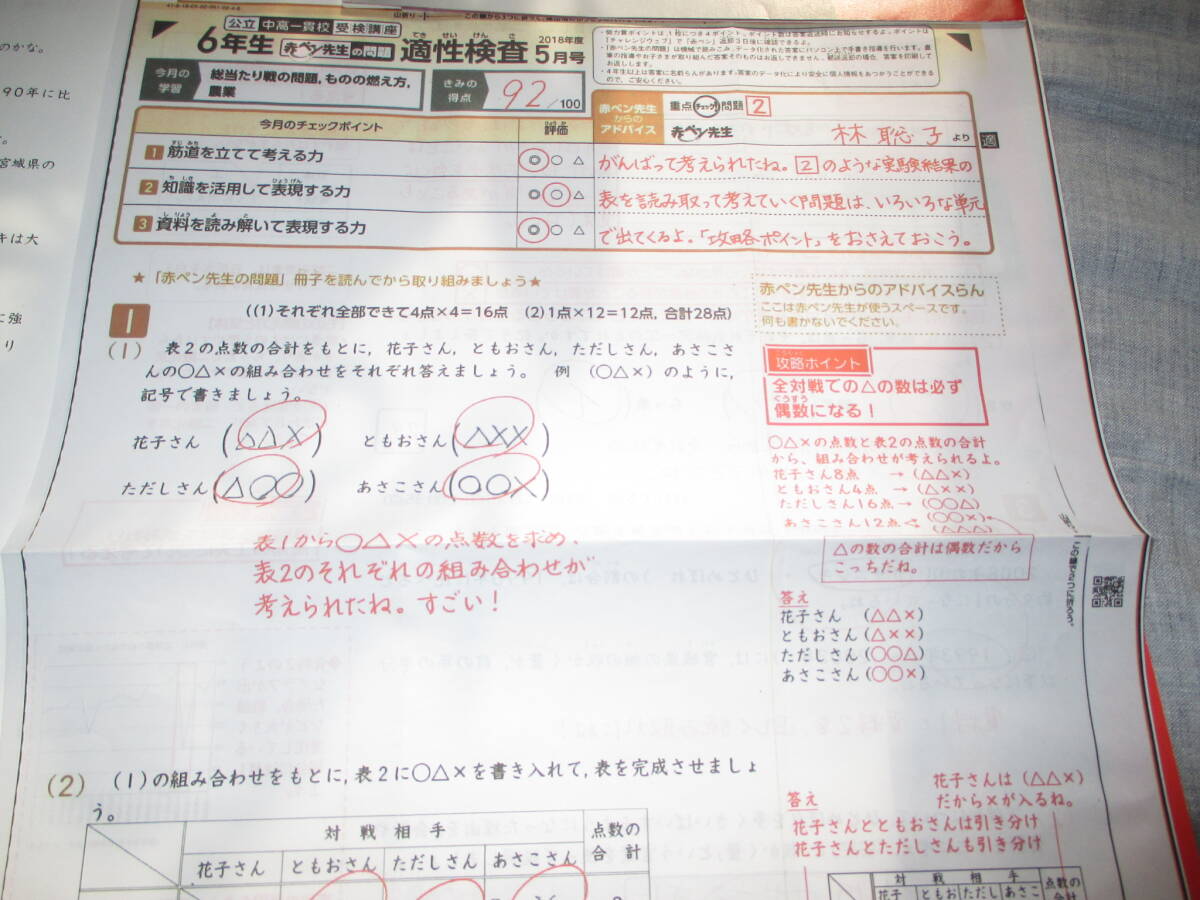 公立 中高一貫校 受検講座
6年生 赤ペン先生の問題 適性検査 2018年度 5月号
てき せい けん さ
今月の学習 総当たり戦の問題，ものの燃え方，農業
きみの得点 92/100
・「赤ペン先生の問題」は機械で読みこみ、データ化された答案にパソコン上で手書き指導を行います。
今月のチェックポイント 評価
1 筋道を立てて考える力 ◎ ○ △
2 知識を活用して表現する力 ◎ ○ △
3 資料を読み解いて表現する力 ◎ ○ △
赤ペン先生からのアドバイス
重点チェック!問題 2
赤ペン先生 林 聡子より
適
がんばって考えられたね。2のような実験結果の
表を読み取って考えていく問題は、いろいろな単元
で出てくるよ。「攻略ポイント」をおさえておこう。
★「赤ペン先生の問題」冊子を読んでから取り組みましょう★
赤ペン先生からのアドバイスらん
ここは赤ペン先生が使うスペースです。
何も書かないでください。
1
((1)それぞれ全部できて4点×4＝16点 (2)1点×12＝12点，合計28点)
(1) 表2の点数の合計をもとに，花子さん，ともおさん，ただしさん，あさこさ
んの○△×の組み合わせをそれぞれ答えましょう。 例 (○△×)のように，
記号で書きましょう。
花子さん (△△×) ともおさん (△××)
ただしさん (△○○) あさこさん (○○×)
表1から○△×の点数を求め、
表2のそれぞれの組み合わせが
考えられたね。すごい！
攻略ポイント
全対戦での△の数は必ず
ぐうすう
偶数になる！
○△×の点数と表2の点数の合計
から、組み合わせが考えられるよ。
花子さん8点 →(△△×)
ともおさん4点 →(△××)
ただしさん16点→(○○△)
あさこさん12点 (○○×)
(△△△)
△の数の合計は偶数だから
こっちだね。
答え
花子さん (△△×)
ともおさん(△××)
ただしさん(○○△)
あさこさん(○○×)
この線で2つに折ろう。
(2) (1)の組み合わせをもとに，表2に○△×を書き入れて，表を完成させましょ
う。
対戦相手 点数の合計
花子さん ともおさん ただしさん あさこさん
花子さんは(△△×)
だから×が入るね。
答え
花子さんとともおさんは引き分け
花子さんとただしさんも引き分け
対戦相手 点数の合計
花子 ともお ただし あさこ
90年に比
宮城県の
キは大
に強
り
のかな。